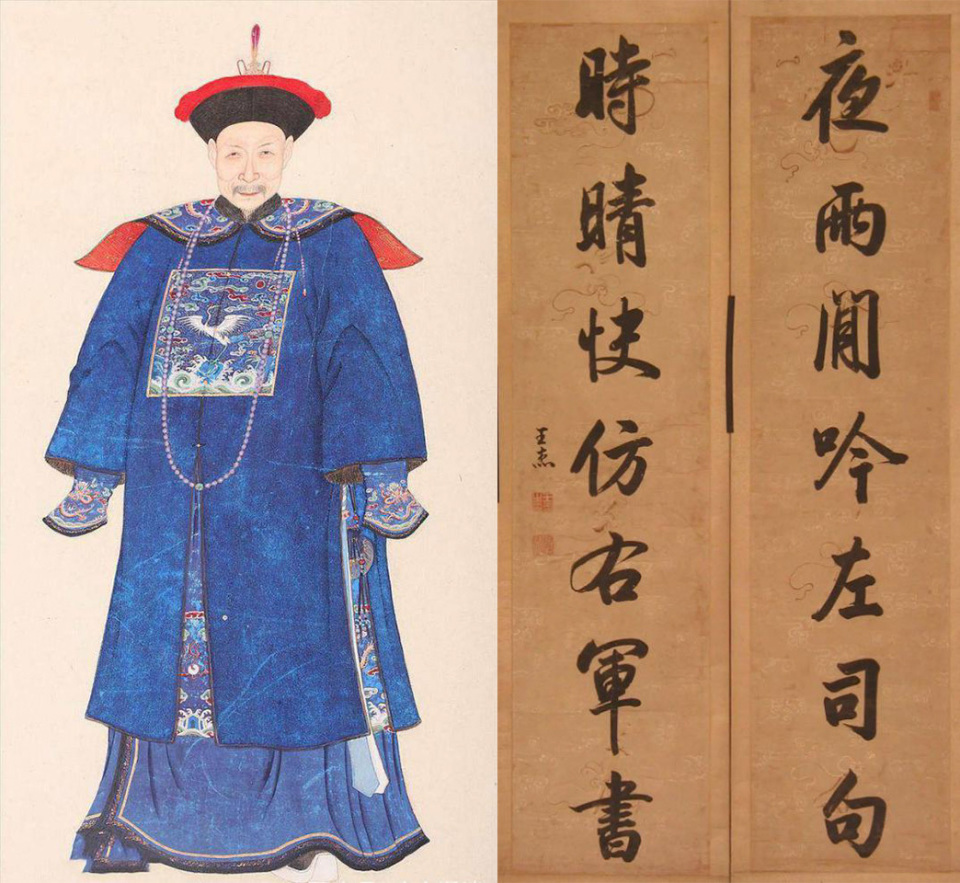 夜雨閒吟左司句
時晴快仿右軍書
王杰